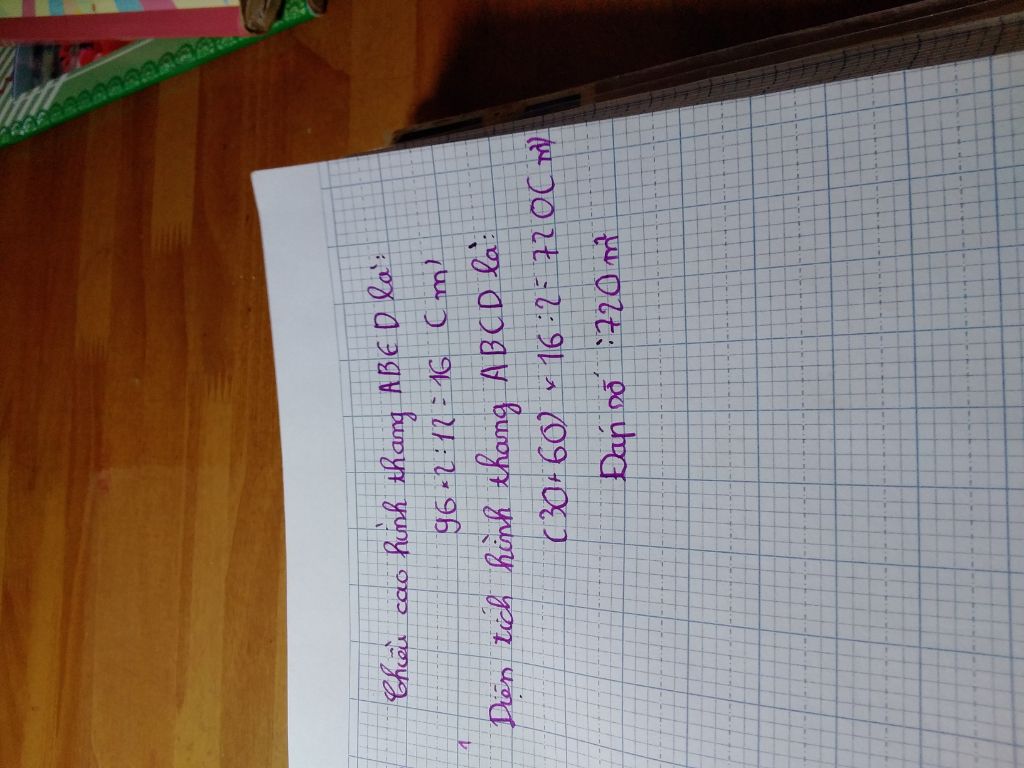 Chiều cao hình thang ABCD là:
96 × 2 : 12 = 16 ( m )
Diện tích hình thang ABCD là:
( 30 + 60 ) × 16 : 2 = 720 ( m² )
Đáp số : 720 m²